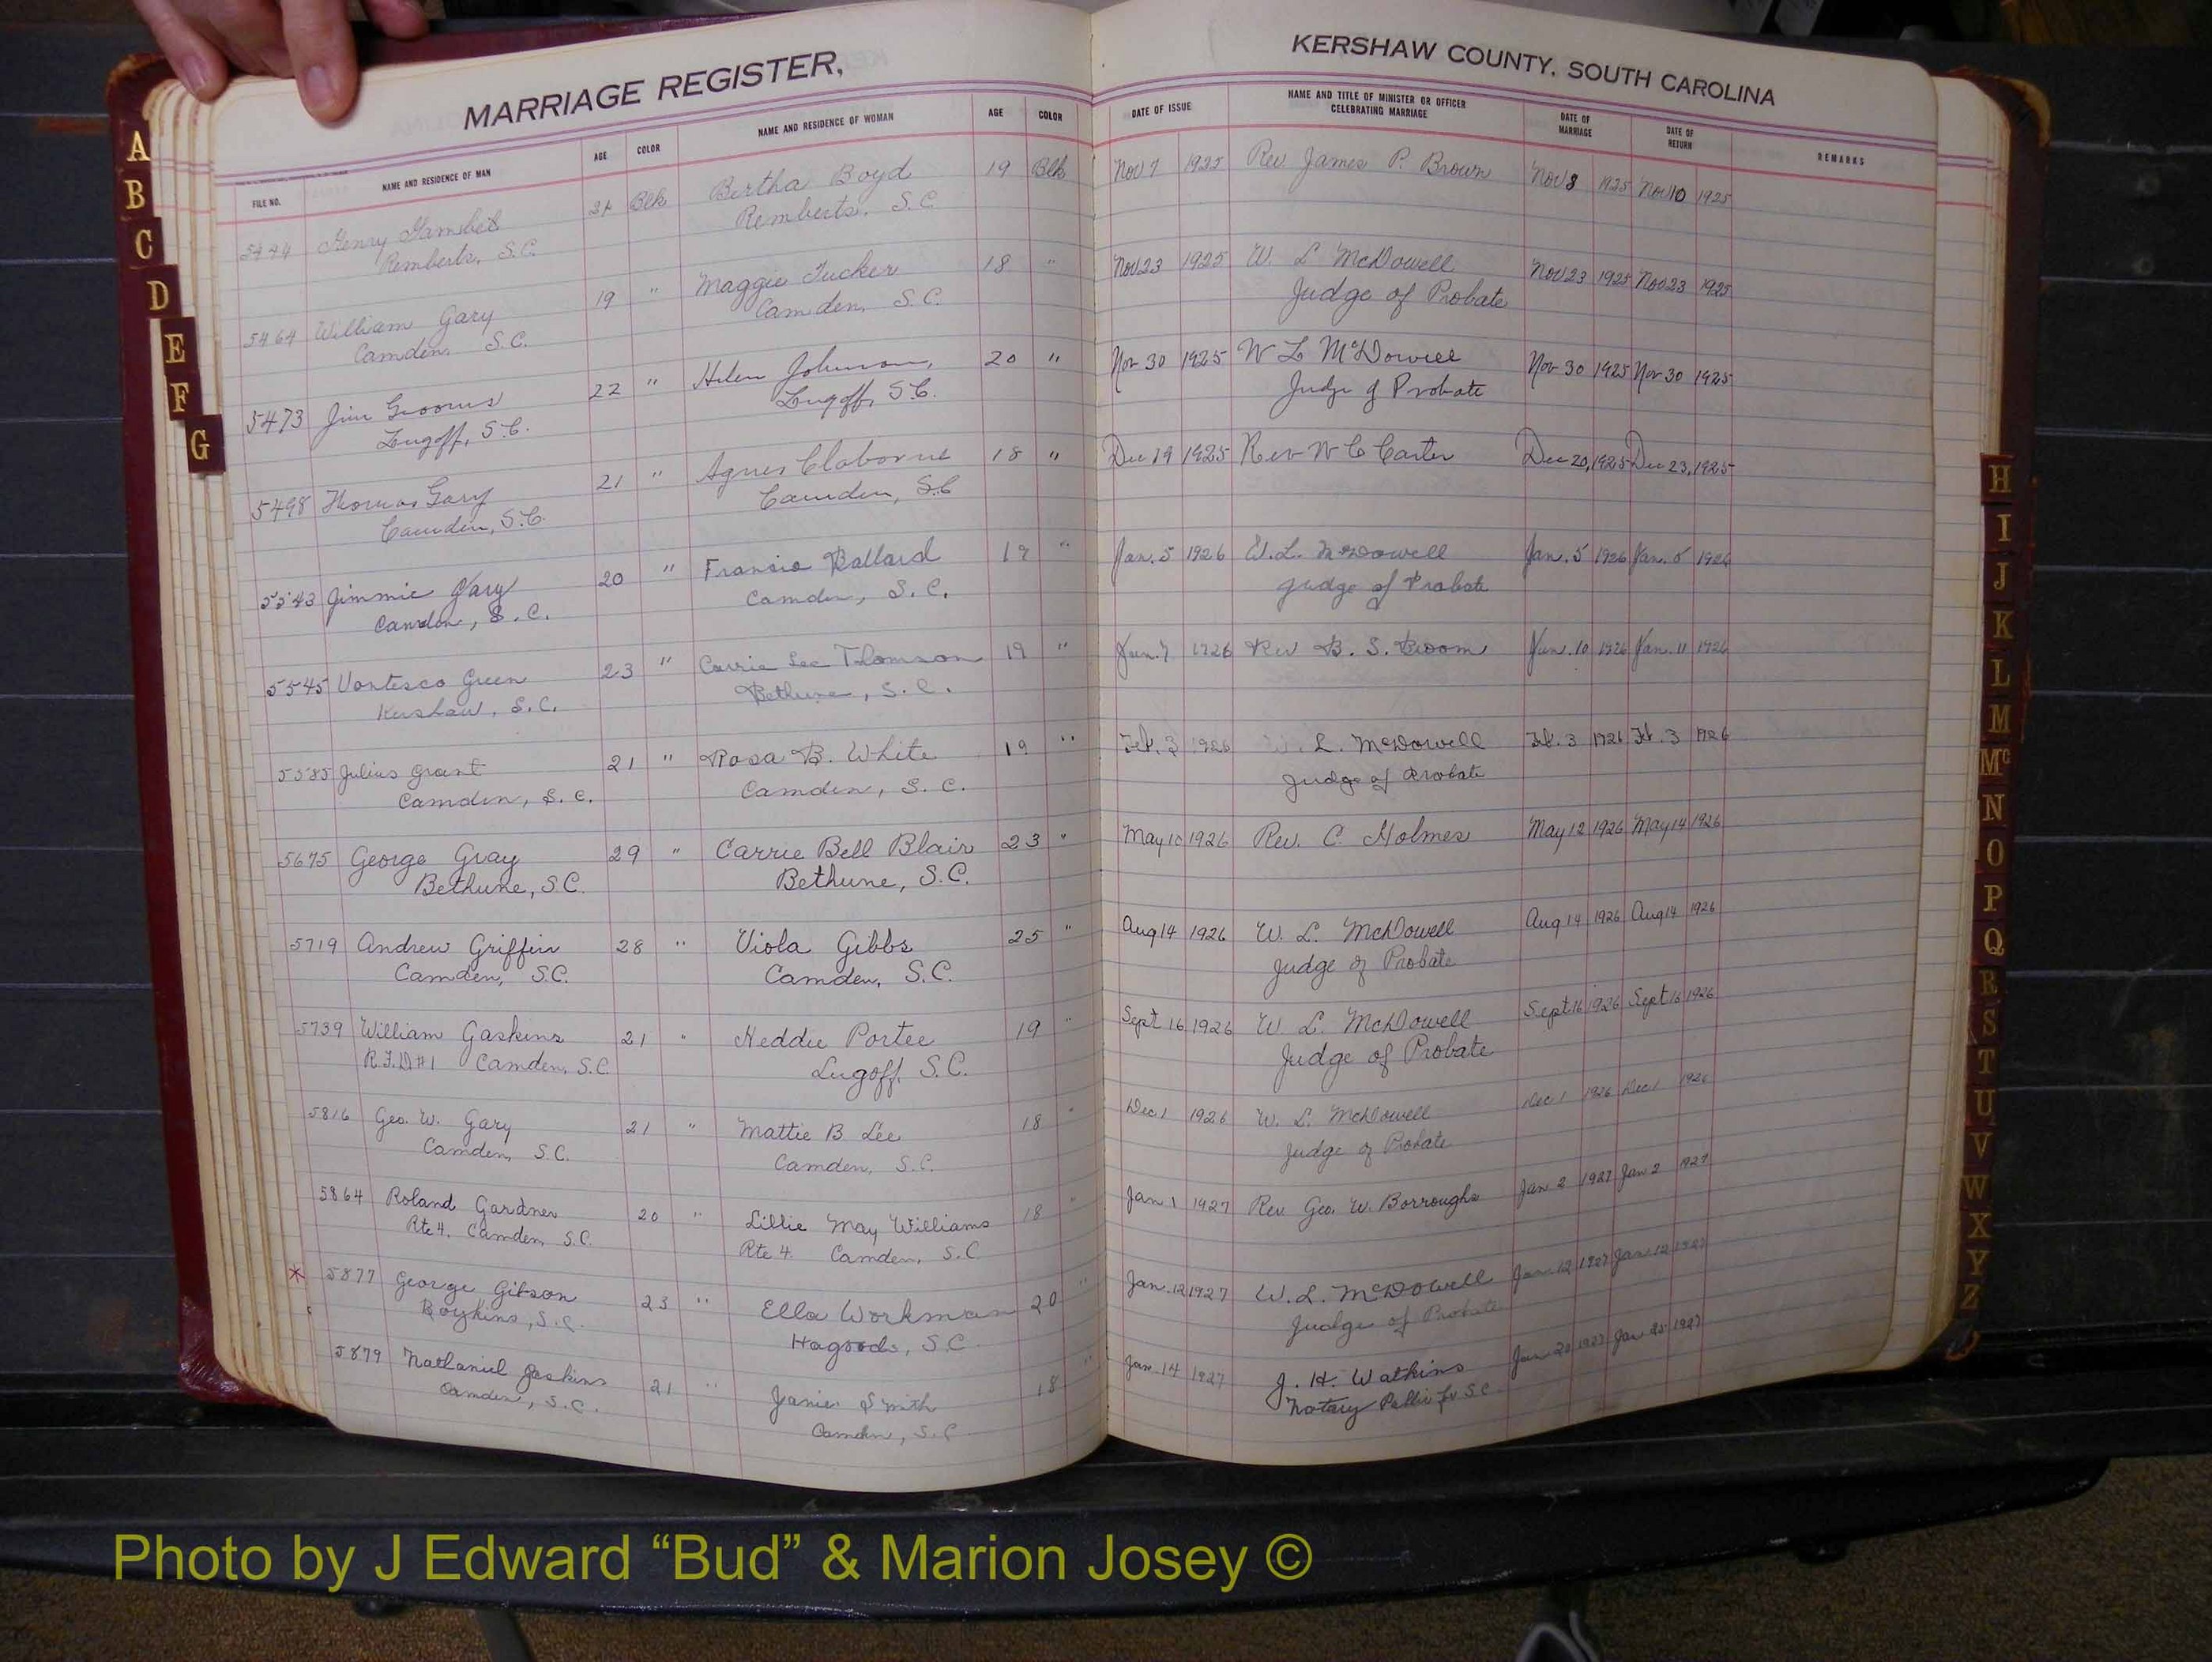 MARRIAGE REGISTER,
KERSHAW COUNTY, SOUTH CAROLINA
FILE NO. NAME AND RESIDENCE OF MAN AGE COLOR NAME AND RESIDENCE OF WOMAN AGE COLOR DATE OF ISSUE NAME AND TITLE OF MINISTER OR OFFICER CELEBRATING MARRIAGE DATE OF MARRIAGE DATE OF RETURN REMARKS
Henry Blk Bertha Boyd 19 Blk Nov 7 1925 Rev James P. Brown Nov 8 1925 Nov 10 1925
Remberts, S.C. Remberts. S.C
5464 William Gary 19 " Maggie Tucker 18 " Nov 23 1925 W. L McDowell Nov 23 1925 Nov 23 1925
Camden S.C. Camden, S.C. Judge of Probate
5473 Jim Grooms 22 " Helen Johnson, 20 " Nov 30 1925 W L McDowell Nov 30 1925 Nov 30 1925
Lugoff, S.C. Lugoff, S.C. Judge of Probate
5498 Thomas Gary 21 " Agnes Claborne 18 " Dec 19 1925 Rev W C Carter Dec 20, 1925 Dec 23, 1925
Camden, S.C. Camden, S.C
5543 Jimmie Gary 20 " Ballard 19 " Jan. 5 1926 W.L. McDowell Jan. 5 1926 Jan. 5 1926
Camden, S.C. Camden, S.C. Judge of Probate
5545 Green 23 " Carrie Lee Thomson 19 " Jan. 7 1926 Rev B. S. Broom Jan. 10 1926 Jan. 11 1926
Kershaw, S.C. Bethune, S.C.
5585 Julius Grant 21 " Rosa B. White 19 " Feb. 3 1926 W. L. McDowell Feb. 3 1926 Feb. 3 1926
Camden, S.C. Camden, S.C. Judge of Probate
5675 George Gray 29 " Carrie Bell Blair 23 " May 10 1926 Rev. C. Holmes May 12 1926 May 14 1926
Bethune, S.C. Bethune, S.C.
5719 Andrew Griffin 28 " Viola Gibbs 25 " Aug 14 1926 W. L. McDowell Aug 14 1926 Aug 14 1926
Camden, S.C. Camden, S.C. Judge of Probate
5739 William Gaskins 21 " Heddie Portee 19 " Sept 16 1926 W. L. McDowell Sept 16 1926 Sept 16 1926
R.F.D. #1 Camden, S.C. Lugoff, S.C. Judge of Probate
5816 Geo. W. Gary 21 " Mattie B Lee 18 " Dec 1 1926 W. L. McDowell Dec 1 1926 Dec 1 1926
Camden, S.C. Camden, S.C. Judge of Probate
5864 Roland Gardner 20 " Lillie May Williams 18 " Jan 1 1927 Rev Geo. W. Borroughs Jan 2 1927 Jan 2 1927
Rte 4. Camden, S.C. Rte 4. Camden, S.C
* 5877 George Gibson 23 " Ella Workman 20 " Jan. 12 1927 W. L. McDowell Jan 12 1927 Jan 12 1927
Boykins, S.C. Hagoods, S.C Judge of Probate
5879 Nathaniel Gaskins 21 " Janie Smith 18 " Jan. 14 1927 J. H. Watkins Jan 1927 Jan 25 1927
Camden, S.C. Camden, S.C. Notary Public for S.C.
A
B
C
D
E
F
G
H
I
J
K
L
M
Mc
N
O
P
Q
R
S
T
U
V
W
X
Y
Z
Photo by J Edward “Bud” & Marion Josey ©